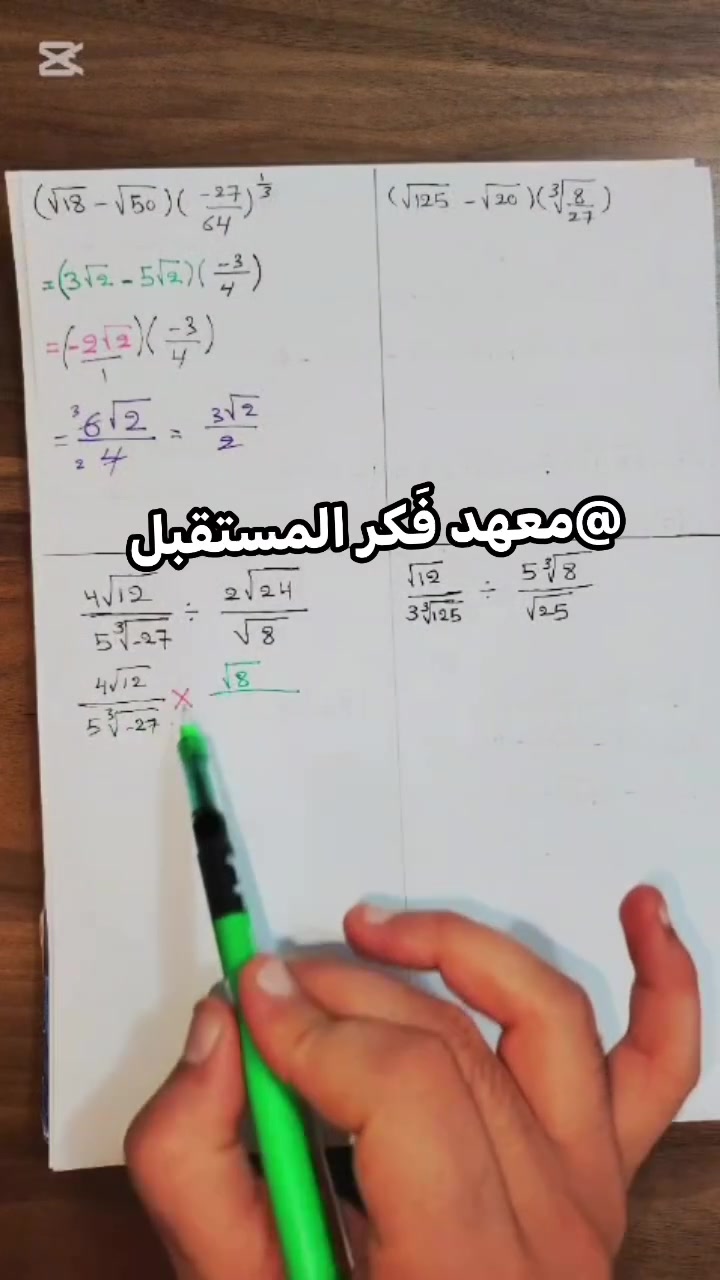 (√18 - √50)(-27/64)^1/3
=(3√2 - 5√2)(-3/4)
=(-2√2/1)(-3/4)
= ³6√2/₂4 = 3√2/2
(√125 - √20)(³√8/27)
@معهد فَكر المستقبل
4√12/5³√-27 ÷ 2√24/√8
4√12/5³√-27 × √8
√12/3³√125 ÷ 5³√8/√25